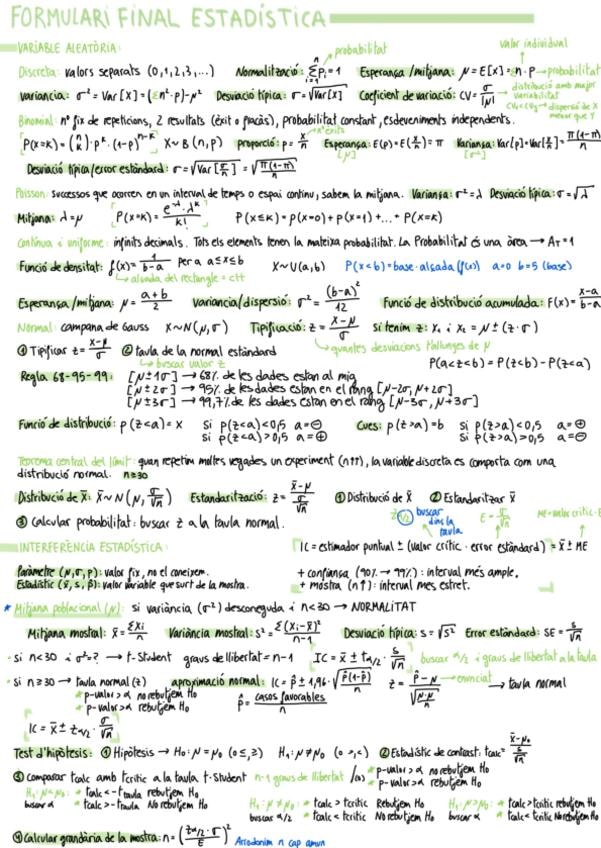 FORMULARI FINAL ESTADÍSTICA
VARIABLE ALEATÒRIA:
probabilitat
valor individual
Discreta: valors separats (0,1,2,3,...) Normalització: Σpᵢ=1 Esperança/mitjana: μ=E[x]=n·p → probabilitat
variancia: σ²=Var[x]=(Σn²·p)-μ² Desviació típica: σ=√Var[x] Coeficient de variació: CV=σ/|μ| → distribució amb major variabilitat
CVx<CVy → dispersió de X menor que Y
Binomial: nº fix de repeticions, 2 resultats (èxit o fracàs), probabilitat constant, esdeveniments independents.
P(x=k)=(n k)·pᵏ·(1-p)ⁿ⁻ᵏ X~B(n,p) Proporció: p=x/n → nº èxits Esperança: E(p)=E(x/n)=π [μ] Variança: Var[p]=Var[x/n]=π(1-π)/n [σ²]
Desviació típica/error estàndard: σ=√Var[x/n]=√π(1-π)/n
Poisson: successos que ocorren en un interval de temps o espai continu, sabem la mitjana. Variança: σ²=λ Desviació típica: σ=√λ
Mitjana: λ=μ P(x=k)=e^-λ·λᵏ/k! P(x≤k)=p(x=0)+p(x=1)+...+P(x=k)
Contínua i uniforme: infinits decimals. Tots els elements tenen la mateixa probabilitat. La Probabilitat és una àrea → A_T=1
Funció de densitat: f(x)=1/b-a per a a≤x≤b X~U(a,b) P(x<b)=base·alçada (f(x)) a=0 b=5 (base)
alçada del rectangle=ctt
Esperança/mitjana: μ=a+b/2 Variancia/dispersió: σ²=(b-a)²/12 Funció de distribució acumulada: F(x)=x-a/b-a
Normal: campana de Gauss X~N(μ,σ) Tipificació: z=x-μ/σ Si tenim z: x₁ i x₂=μ±(z·σ)
quantes desviacions t'allunges de μ
① Tipificar z=x-μ/σ ② taula de la normal estàndard
buscar valor z
P(a<z<b)=P(z<b)-P(z<a)
Regla 68-95-99: [μ±1σ] → 68% de les dades estan al mig
[μ±2σ] → 95% de les dades estan en el rang [μ-2σ, μ+2σ]
[μ±3σ] → 99,7% de les dades estan en el rang [μ-3σ, μ+3σ]
Funció de distribució: p(z<a)=x Si p(z<a)<0,5 a=⊖ Cues: p(z>a)=b Si p(z>a)<0,5 a=⊕
Si p(z<a)>0,5 a=⊕ Si p(z>a)>0,5 a=⊖
Teorema central del límit: quan repetim moltes vegades un experiment (n↑↑), la variable discreta es comporta com una
distribució normal. n≥30
Distribució de x̄: x̄~N(μ,σ/√n) Estandarització: z=x̄-μ/σ/√n ① Distribució de x̄ ② Estandaritzar x̄
③ Calcular probabilitat: buscar z a la taula normal.
z α/2 → buscar dins la taula E=σ/√n ME=valor crític·E
INTERFERÈNCIA ESTADÍSTICA:
IC=estimador puntual ± (valor crític · error estàndard)=x̄±ME
Paràmetre (μ,σ,p): valor fix, no el coneixem.
Estadístic (x̄,s,p̂): valor variable que surt de la mostra.
+ confiança (90% → 99%): interval més ample.
+ mostra (n↑): interval mes estret.
* Mitjana poblacional (μ): si variància (σ²) desconeguda i n<30 → NORMALITAT
Mitjana mostral: x̄=Σxᵢ/n Variància mostral: s²=Σ(xᵢ-x̄)²/n-1 Desviació típica: s=√s² Error estàndard: SE=s/√n
· si n<30 i σ²=? → t-Student graus de llibertat=n-1 IC=x̄±tα/2·s/√n buscar α/2 i graus de llibertat a la taula
· si n≥30 → taula normal (z) aproximació normal: IC=p̂±1,96·√p̂(1-p̂)/n z=p̂-μ → enunciat → taula normal
* p-valor>α no rebutjem H₀
* p-valor>α rebutjem H₀
p̂=casos favorables/n
IC=x̄±zα/2·σ/√n
Test d'hipòtesis: ① Hipòtesis → H₀: μ=μ₀ (o≤,≥) H₁: μ≠μ₀ (o>,<) ② Estadístic de contrast: tcalc=x̄-μ₀/s/√n
③ Comparar tcalc amb tcrític a la taula t-Student n-1 graus de llibertat
* p-valor>α no rebutjem H₀
* p-valor>α rebutjem H₀
H₁: μ<μ₀: * tcalc<-ttaula rebutjem H₀ H₁: μ≠μ₀: * tcalc>tcrític Rebutjem H₀ H₁: μ>μ₀: * tcalc>tcrític Rebutjem H₀
buscar α * tcalc>-ttaula No rebutjem H₀ buscar α/2 * tcalc<tcrític No Rebutjem H₀ buscar α * tcalc<tcrític No rebutjem H₀
④ Calcular grandària de la mostra: n=(zα/2·σ/E)² Arrodonim n cap amunt